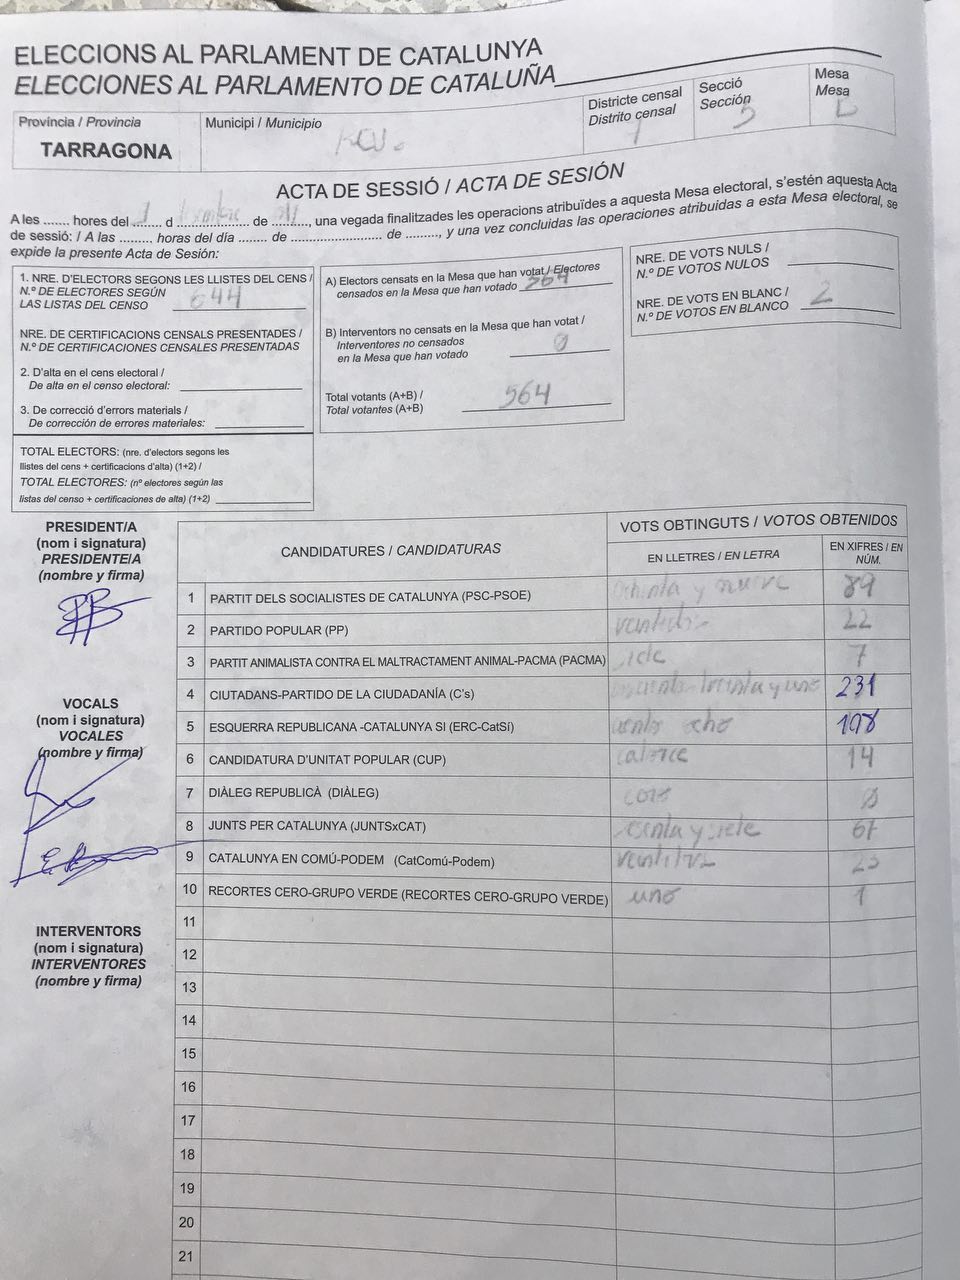 ELECCIONS AL PARLAMENT DE CATALUNYA
ELECCIONES AL PARLAMENTO DE CATALUÑA
Província / Provincia
TARRAGONA
Municipi / Municipio
Districte censal
Distrito censal
1
Secció
Sección
5
Mesa
Mesa
ACTA DE SESSIÓ / ACTA DE SESIÓN
A les ....... hores del ....... d ....... de ......., una vegada finalitzades les operacions atribuïdes a aquesta Mesa electoral, s'estén aquesta Acta
de sessió: / A las ......... horas del día ....... de ....................... de ........, y una vez concluidas las operaciones atribuidas a esta Mesa electoral, se
expide la presente Acta de Sesión:
1. NRE. D'ELECTORS SEGONS LES LLISTES DEL CENS /
N.º DE ELECTORES SEGÚN
LAS LISTAS DEL CENSO 644
NRE. DE CERTIFICACIONS CENSALS PRESENTADES /
N.º DE CERTIFICACIONES CENSALES PRESENTADAS
2. D'alta en el cens electoral /
De alta en el censo electoral:
3. De correcció d'errors materials /
De corrección de errores materiales:
TOTAL ELECTORS: (nre. d'electors segons les
llistes del cens + certificacions d'alta) (1+2) /
TOTAL ELECTORES: (nº electores según las
listas del censo + certificaciones de alta) (1+2)
A) Electors censats en la Mesa que han votat / Electores
censados en la Mesa que han votado 564
B) Interventors no censats en la Mesa que han votat /
Interventores no censados
en la Mesa que han votado 0
Total votants (A+B) /
Total votantes (A+B) 564
NRE. DE VOTS NULS /
N.º DE VOTOS NULOS
NRE. DE VOTS EN BLANC /
N.º DE VOTOS EN BLANCO 2
PRESIDENT/A
(nom i signatura)
PRESIDENTE/A
(nombre y firma)
VOCALS
(nom i signatura)
VOCALES
(nombre y firma)
INTERVENTORS
(nom i signatura)
INTERVENTORES
(nombre y firma)
CANDIDATURES / CANDIDATURAS
VOTS OBTINGUTS / VOTOS OBTENIDOS
EN LLETRES / EN LETRA
EN XIFRES / EN
NÚM.
1 PARTIT DELS SOCIALISTES DE CATALUNYA (PSC-PSOE) ochenta y nueve 89
2 PARTIDO POPULAR (PP) 22
3 PARTIT ANIMALISTA CONTRA EL MALTRACTAMENT ANIMAL-PACMA (PACMA) siete 7
4 CIUTADANS-PARTIDO DE LA CIUDADANÍA (C's) treinta y uno 231
5 ESQUERRA REPUBLICANA -CATALUNYA SI (ERC-CatSí) ciento ocho 108
6 CANDIDATURA D'UNITAT POPULAR (CUP) catorce 14
7 DIÀLEG REPUBLICÀ (DIÀLEG) cero 0
8 JUNTS PER CATALUNYA (JUNTSxCAT) sesenta y siete 67
9 CATALUNYA EN COMÚ-PODEM (CatComú-Podem) veintitres 23
10 RECORTES CERO-GRUPO VERDE (RECORTES CERO-GRUPO VERDE) uno 1
11
12
13
14
15
16
17
18
19
20
21